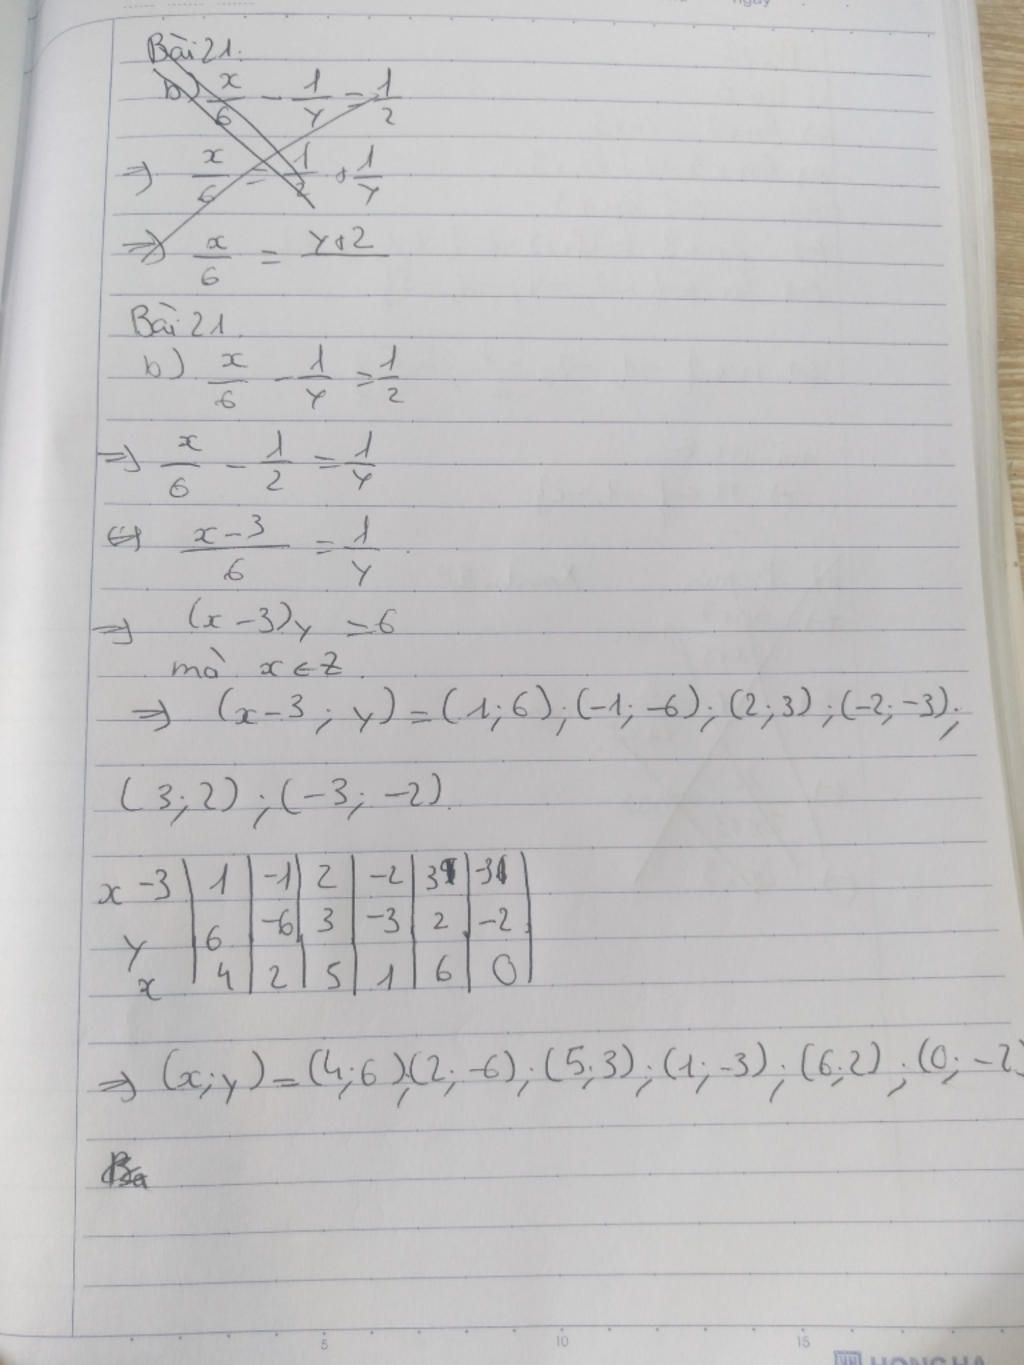 Bài 21.
b) x/6 - 1/y = 1/2
=> x/6 = 1/2 + 1/y
=> x/6 = y+2
Bài 21.
b) x/6 - 1/y = 1/2
=> x/6 - 1/2 = 1/y
<=> x-3/6 = 1/y
=> (x-3)y = 6
mà x ∈ Z
=> (x-3; y) = (1; 6); (-1; -6); (2; 3); (-2; -3);
(3; 2); (-3; -2).
x-3 | 1 | -1 | 2 | -2 | 3 | -3 |
y | 6 | -6 | 3 | -3 | 2 | -2 |
x | 4 | 2 | 5 | 1 | 6 | 0 |
=> (x; y) = (4; 6); (2; -6); (5; 3); (1; -3); (6; 2); (0; -2)
5 10 15